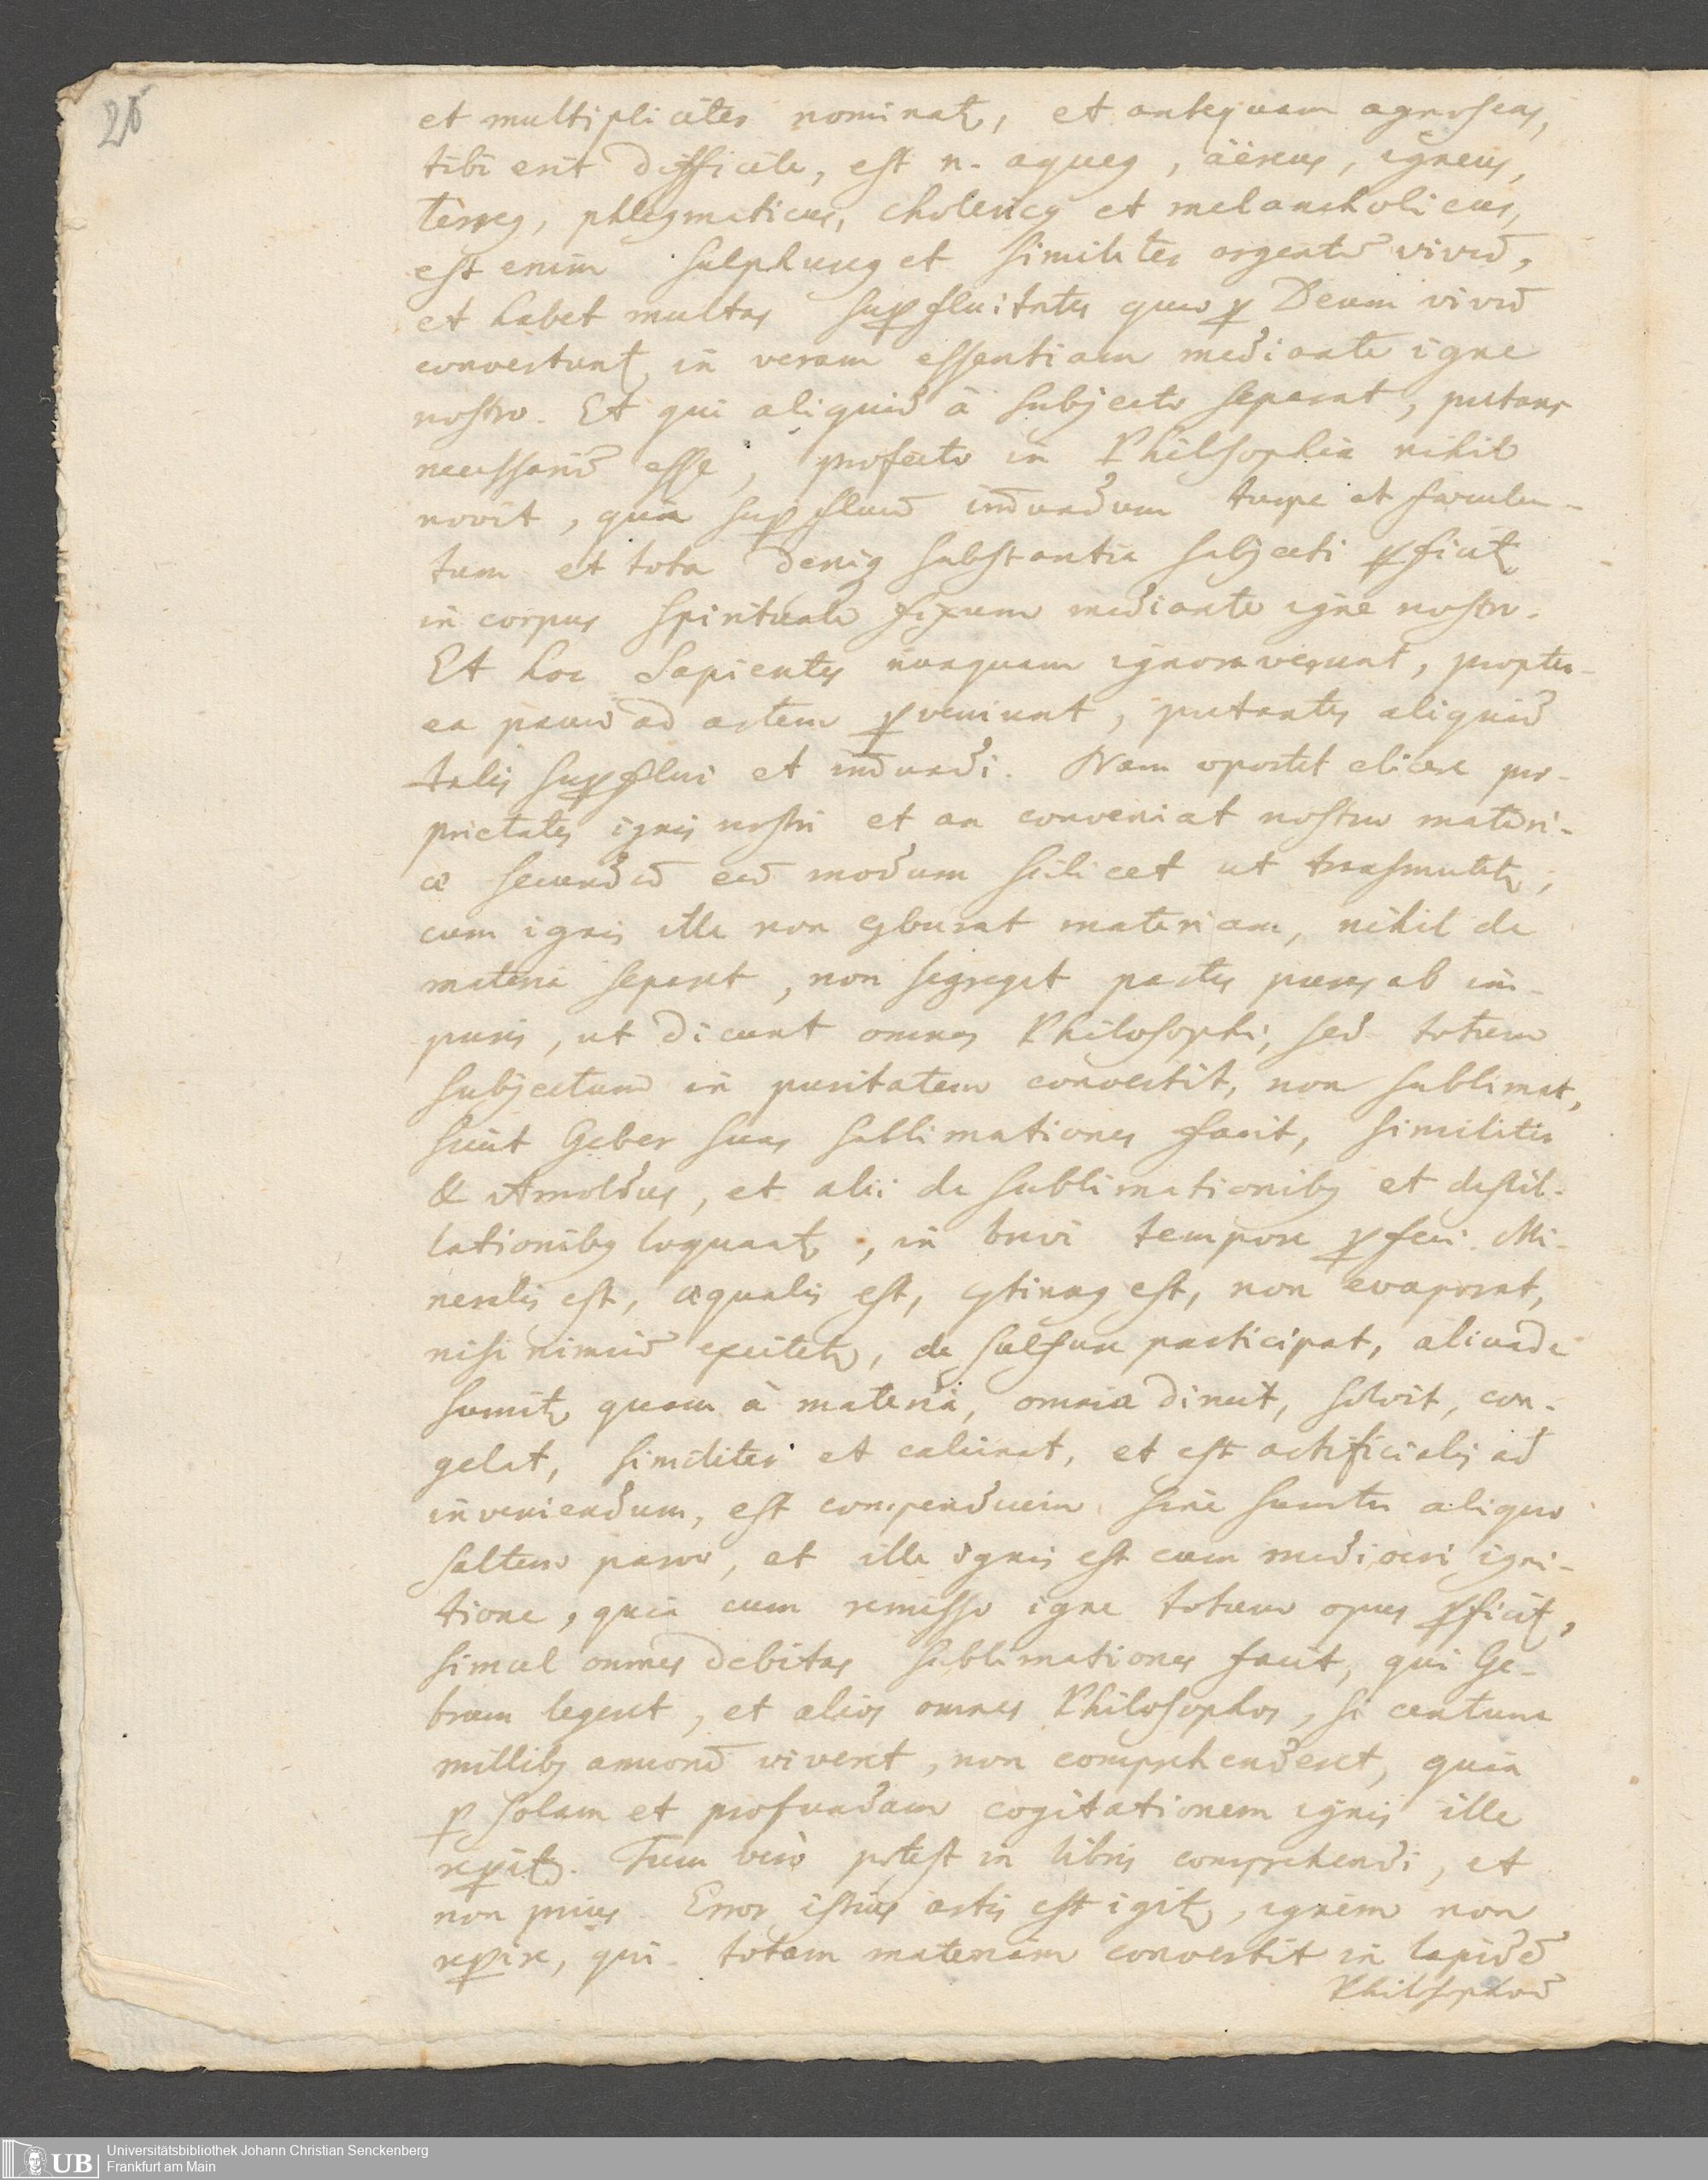 25
et multipliciter nominatꝛ, et antequam agnoscas,
tibi erit difficile, est n. aqueꝰ, äereus, igneus,
terreꝰ, phlegmaticus, cholericꝰ et melancholicus,
est enim sulphureꝰ et similiter argentū vivū,
et habet multas suꝑfluitates quæ ꝑ Deum vivū
convertuntꝛ in veram essentiam mediante igne
nostro. Et qui aliquid à subjecto separat, putans
necessariū esse, profecto in Philosophia nihil
novit, quia suꝑfluū im̄undum turpe et fœculen-
tum et tota deniqꝫ substantia subjecti ꝑficitꝛ
in corpus spirituale fixum mediante igne nostro.
Et hoc Sapientes nunquam ignoraverunt, propter-
ea pauci ad artem ꝑveniunt, putantes aliquid
talis suꝑflui et im̄undi. Nam oportet elicere pro-
prietates ignis nostri et an conveniat nostræ materi-
æ secundū eū modum scilicet ut trasmutetꝛ,
cum ignis ille non ꝯburat materiam, nihil de
materia separet, non segreget partes puras ab im-
puris, ut dicunt omnes Philosophi, sed totum
subjectum in puritatem convertit, non sublimat,
sicut Geber suas sublimationes facit, similiter
& Arnoldus, et alii de sublimationibꝰ et destil-
lationibꝰ loquantꝛ, in brevi tempore ꝑfeci. Mi-
neralis est, æqualis est, ꝯtinuꝰ est, non evaporat,
nisi nimiū excitetꝛ, de sulfure participat, aliunde
sumitꝛ quam à materia, omnia diruit, solvit, con-
gelat, similiter et calcinat, et est artificialis ad
inveniendum, est compendium sine sumtu aliquo
saltem parvo, et ille ignis est cum mediocri igni-
tione, quia cum remisso igne totum opus ꝑficitꝛ,
simul omnes debitas sublimationes facit, qui Ge-
brum legeret, et alios omnes Philosophos, si centum
millibꝰ annorū viveret, non comprehenderet, quia
ꝑ solam et profundam cogitationem ignis ille
reꝑitꝛ. Tum verò potest in libris comprehendi, et
non prius. Error istius artis est igitꝛ, ignem non
reꝑire, qui totam materiam convertit in lapidē
Philosophorū
UB Universitätsbibliothek Johann Christian Senckenberg
Frankfurt am Main